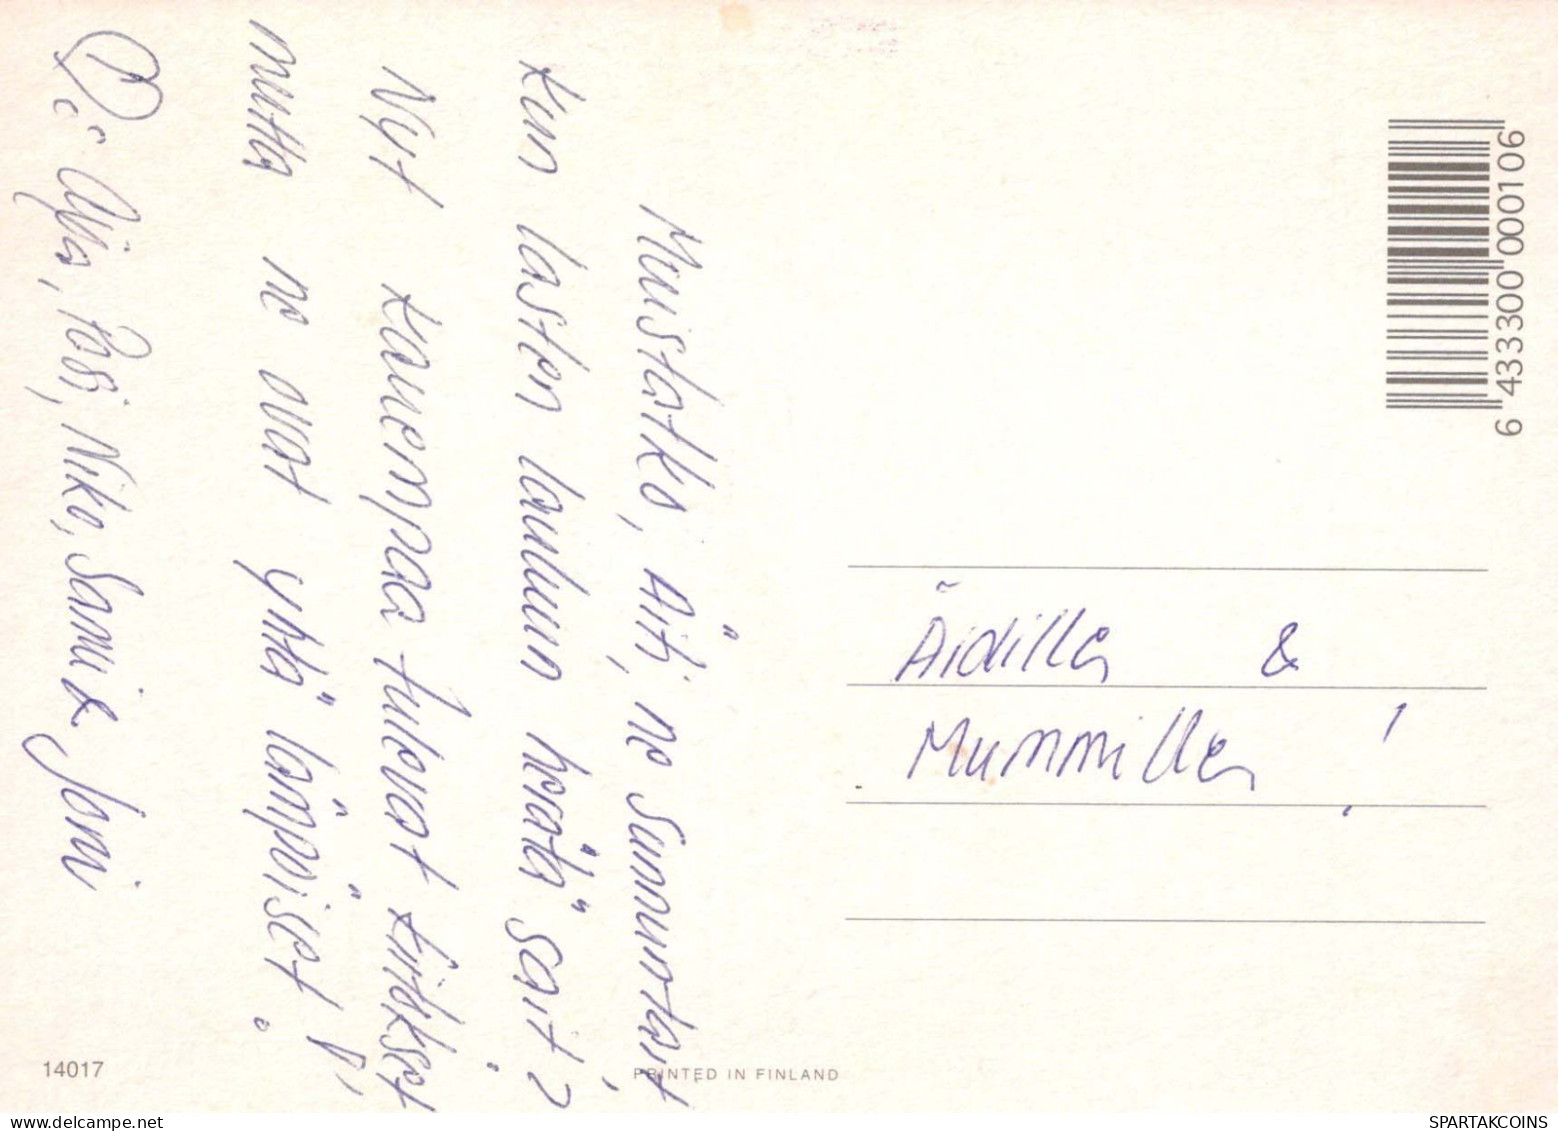 Muistatko, Äiti, ne Sunnuntait,
kun lasten laulun herätä sait?
Nyt kauempaa tulevat kiitokset,
mutta ne ovat yhtä lämpöiset!
Arja, Pasi, Niko, Sami & Joni
Äidille &
Mummille!
6 433300 000106
14017
PRINTED IN FINLAND
SPARTAKCOINS